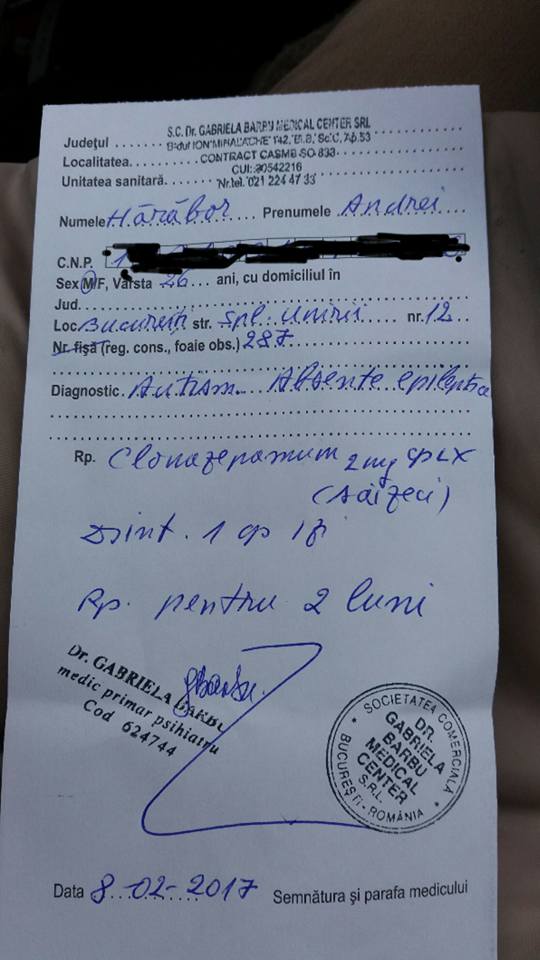 S.C. Dr. GABRIELA BARBU MEDICAL CENTER SRL
Județul
B-dul ION MIHALACHE 142, Bl. B, Sc. C, Ap. 53
Localitatea CONTRACT CASMB SO 833
CUI: 30542216
Unitatea sanitară Nr. tel. 021 224 47 33
Numele Hărăbor Prenumele Andrei
C.N.P.
Sex M/F, Vârsta 26 ani, cu domiciliul în
Jud.
Loc. București str. Spl. Unirii nr. 12
Nr. fișă (reg. cons., foaie obs.) 287
Diagnostic. Autism. Absente epileptice
Rp. Clonazepamum 2 mg cp LX
(șaizeci)
Dsint. 1 cp
Rp. pentru 2 luni
Dr. GABRIELA BARBU
medic primar psihiatru
Cod 624744
GBarbu.
SOCIETATEA COMERCIALĂ
DR. GABRIELA
BARBU
MEDICAL
CENTER
S.R.L.
BUCUREȘTI - ROMÂNIA
Data 8-02-2017 Semnătura și parafa medicului